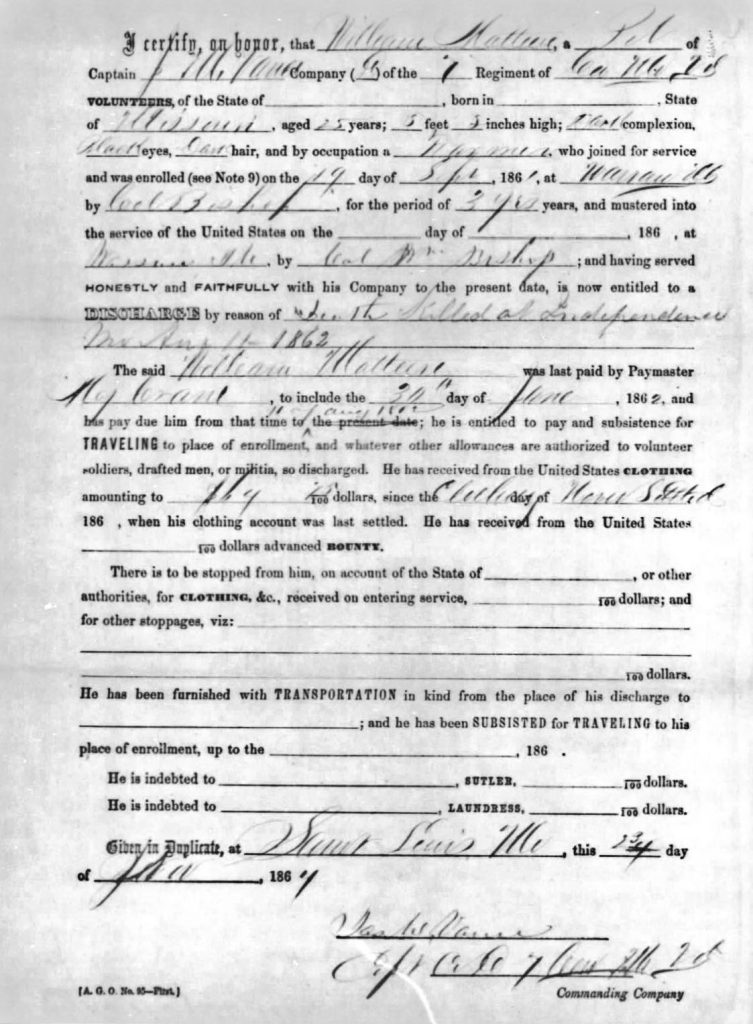 I certify, on honor, that William Matteen, a Pvt of
Captain J Mc Company (G) of the 7 Regiment of Cav Mo Vol
VOLUNTEERS, of the State of , born in , State
of Missouri, aged 25 years; 5 feet 8 inches high; Dark complexion,
Black eyes, Dark hair, and by occupation a Farmer, who joined for service
and was enrolled (see Note 9) on the 19 day of Sept, 1861, at Warsaw Ills
by Col Bishop, for the period of 3 yrs years, and mustered into
the service of the United States on the day of , 186 , at
Warsaw Ills, by Col Wm Bishop; and having served
HONESTLY and FAITHFULLY with his Company to the present date, is now entitled to a
DISCHARGE by reason of death Killed at Independence
Mo Aug 11 1862
The said William Matteen was last paid by Paymaster
Maj Crane, to include the 30th day of June, 1862, and
has pay due him from that time to the present date; he is entitled to pay and subsistence for
11 of Aug 1862
TRAVELING to place of enrollment, and whatever other allowances are authorized to volunteer
soldiers, drafted men, or militia, so discharged. He has received from the United States CLOTHING
amounting to 100 dollars, since the day of Never Settled
186 , when his clothing account was last settled. He has received from the United States
100 dollars advanced BOUNTY.
There is to be stopped from him, on account of the State of , or other
authorities, for CLOTHING, &c., received on entering service, 100 dollars; and
for other stoppages, viz:
100 dollars.
He has been furnished with TRANSPORTATION in kind from the place of his discharge to
; and he has been SUBSISTED for TRAVELING to his
place of enrollment, up to the , 186 .
He is indebted to , SUTLER, 100 dollars.
He is indebted to , LAUNDRESS, 100 dollars.
Given in Duplicate, at Saint Louis Mo, this day
of , 1864
Capt Co G 7 Cav Mo Vol
[A. G. O. No. 95—First.] Commanding Company